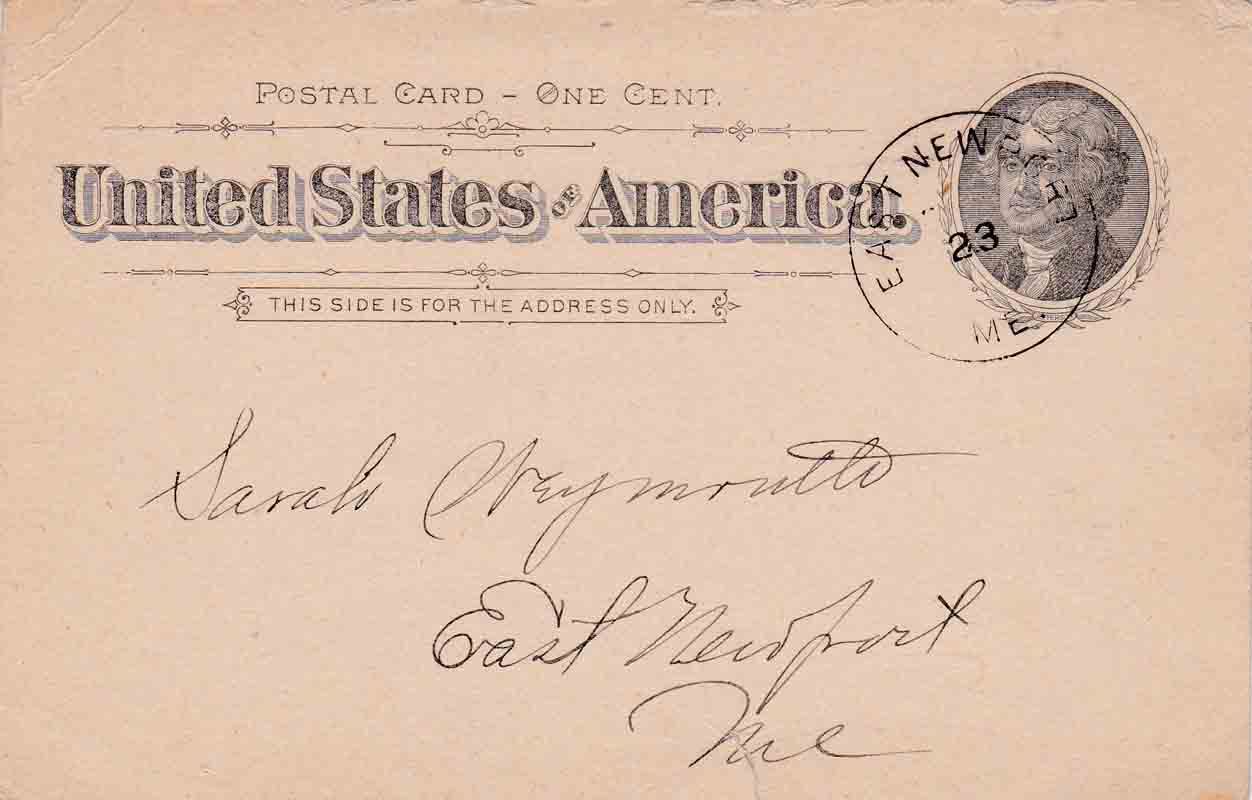 POSTAL CARD - ONE CENT.
United States OF America.
THIS SIDE IS FOR THE ADDRESS ONLY.
EAST NEW
23
ME
Sarah Weymouth
East Newport
Me